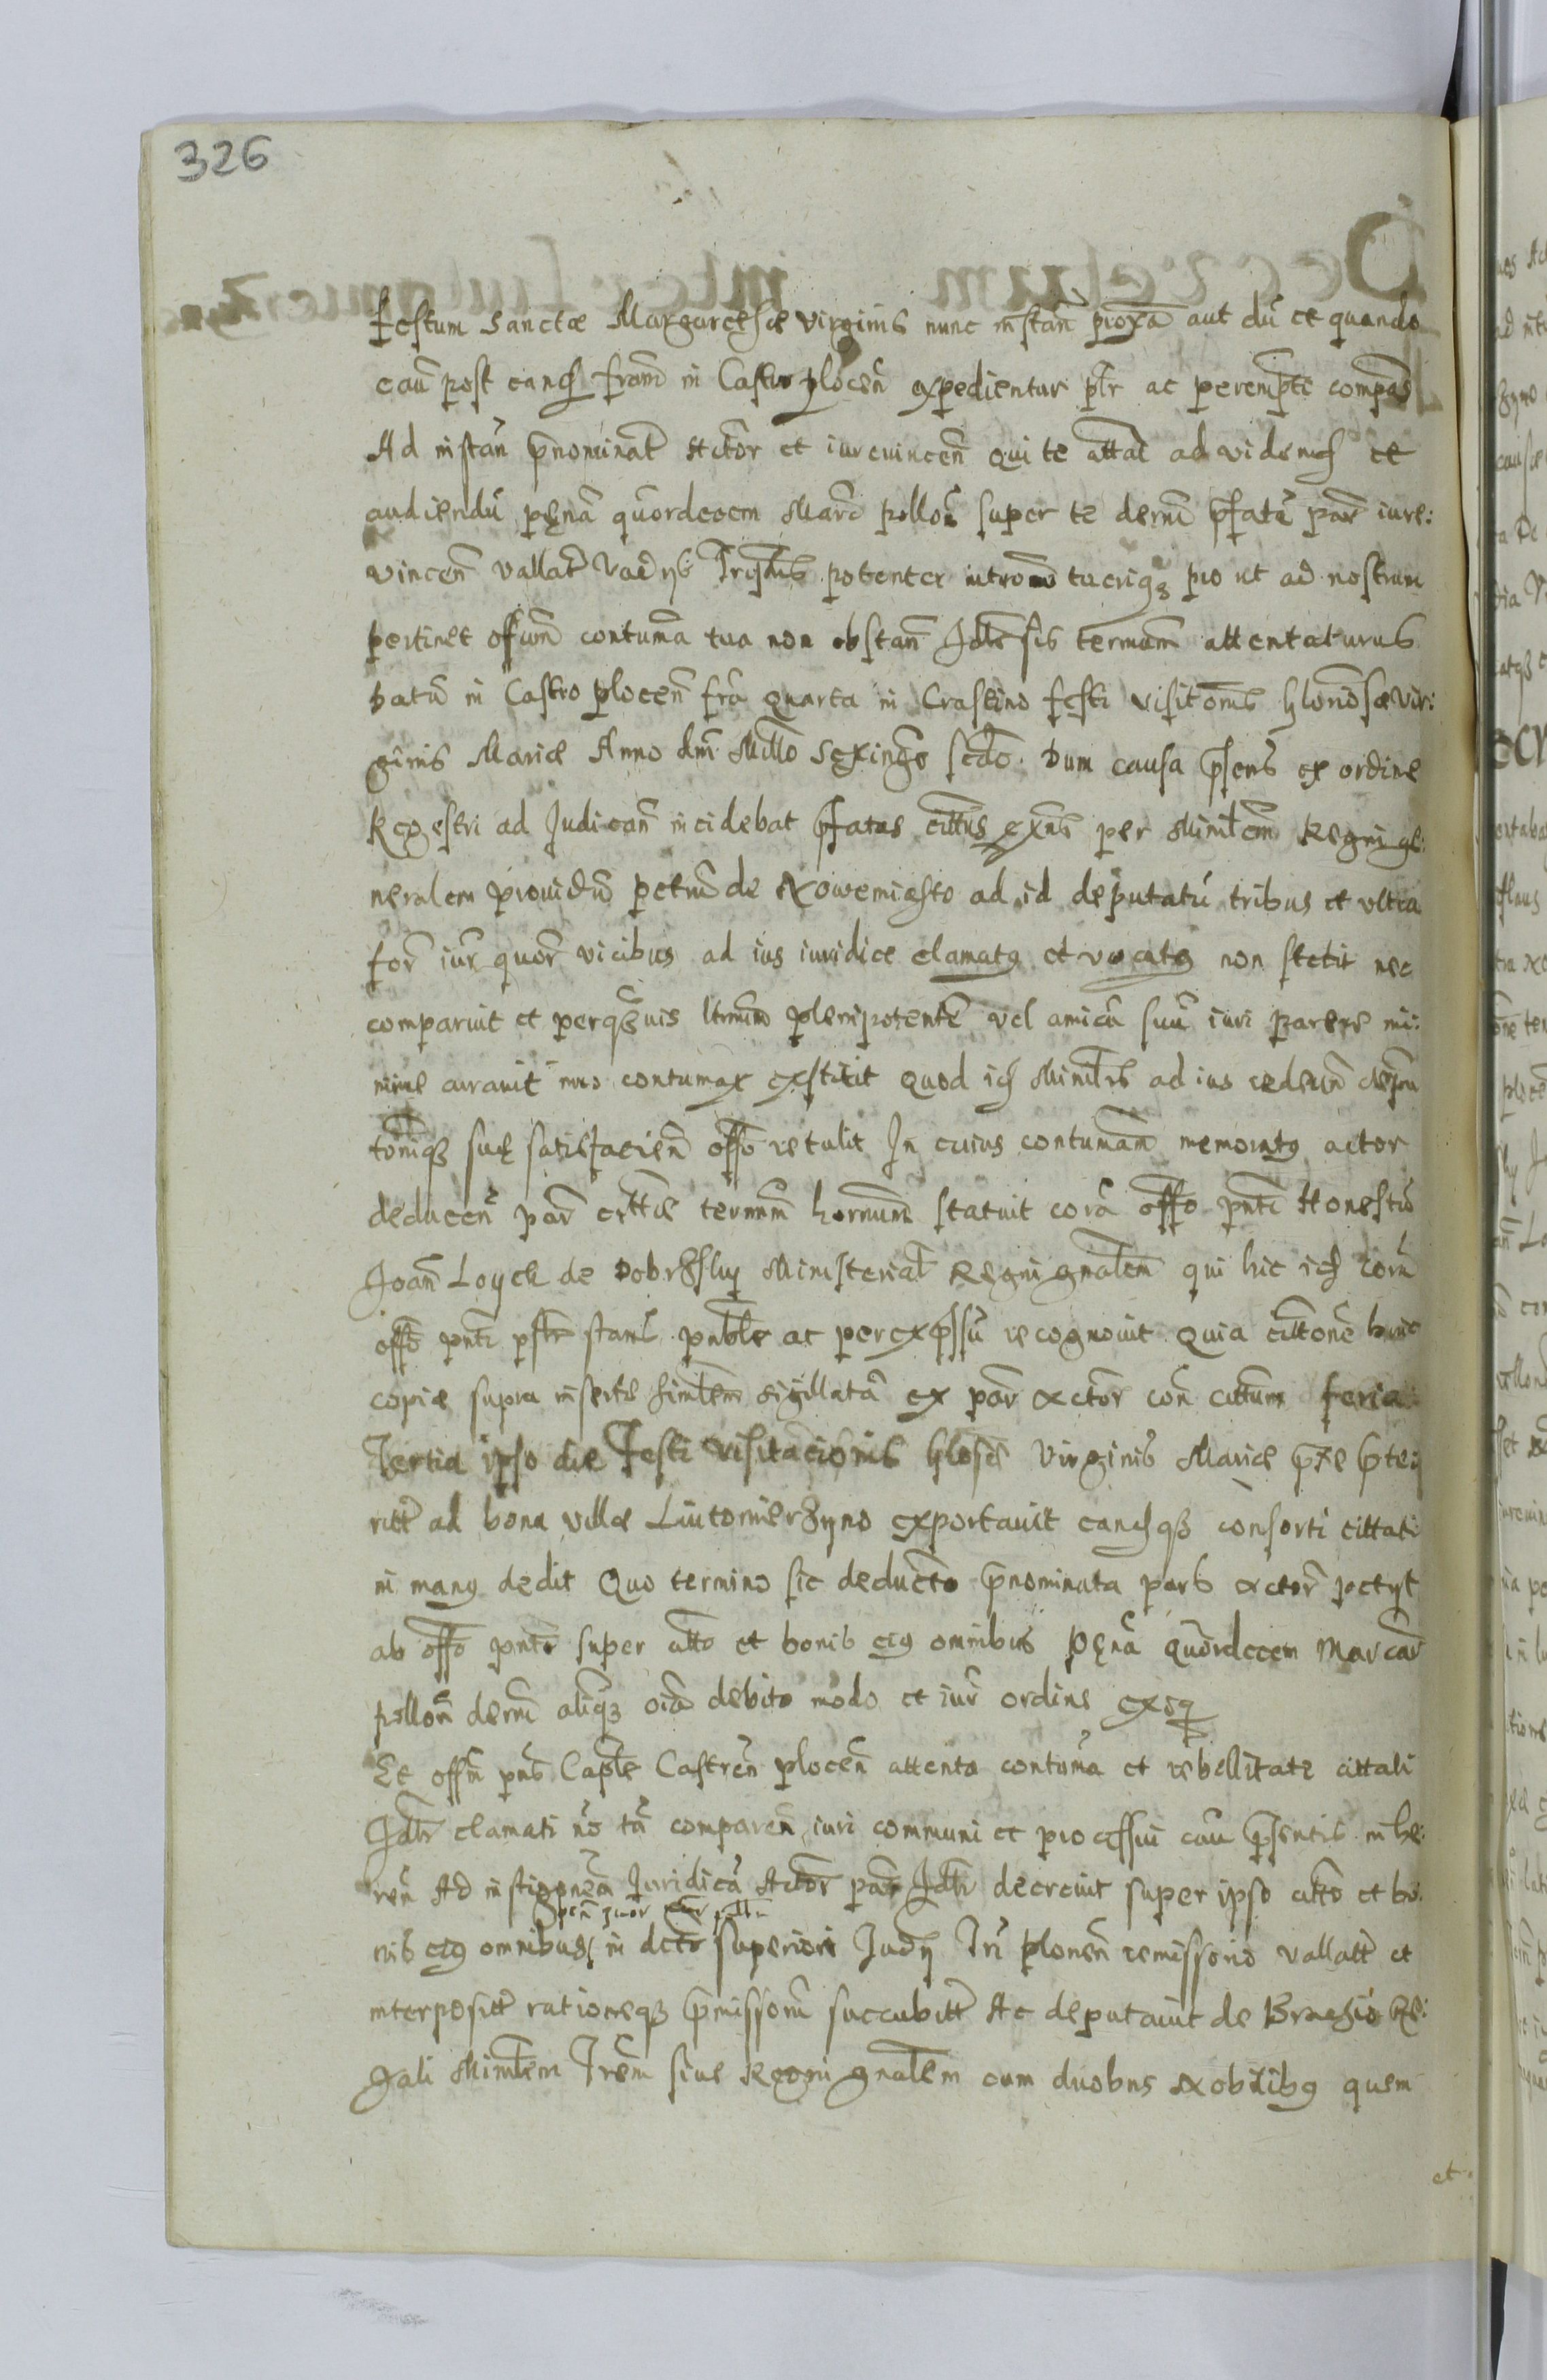 326
festum Sanctæ Margarethæ virginis nunc instañ proxã aut dũ et quando
cãu post eandẽ frãm in Castro plocẽn expedientur pltr ac peremptе compãs
Ad instãn p̃nominat̃ Actõr et iurevincẽn qui te attat̃ ad videndũ et
audiendũ pęnã quõrdecem Marc̃ pollõn super te dernĩ p̃fatã pãr iure:
vincẽn vallat̃ Vadys potenter pro ut ad nostrum
pertinet offiũm contumã tua non obstañ termĩnm attentaturus
Datũ in Castro plocẽn frã quarta in Crastino festi visitõnis glõriosæ vir:
ginis Mariæ Anno dnĩ Millõ sexingõ scdõ. Dum causa p̃sens ex ordine
Regestri ad Judicañ incidebat p̃fatus cittũs per Minil̃em Regni ge:
neralem providũ petrũ de Nowemiasto ad id deputatũ tribus et ultra
for̃ iur̃ quõr vicibus ad ius iuridice clamatg et vocatg non stetit nec
comparuit et perq̃uis ltmũm plenipotentẽ vel amicũ suũ iuri parere mi:
nime curavit imo contumax extitit Quod id̃ Minil̃is ad ius redeuñ
tõniq̃ suę satisfacieñ offõ retulit In cuius contumãm memoratg actor
deducẽn pãr cittæ termĩnm hornũm statuit corã offõ pñti Honestũ
Joañ Loyek de Dobrzsky Ministerial̃ Regni gnãlem qui hic id̃ corã
offõ pñti pstr̃ stans pnbl̃e ac per exp̃ssũ recognovit Quia cittõnẽ huic
copiæ supra insertæ simil̃em sigillatã ex pãr actõr cõn cittũm feria
Tertia ipso die Festi visitacionis glõsæ Virginis Mariæ p̃xe p̃te:
ritt̃ ad bona villæ Liutomierzyno exportavit eandq̃ consorti cittati
in mang dedit Quo termino sic deducto p̃nominata pars actõr petyt
ab offõ pñte super attõ et bonis eig omnibus pęnã quõrdecem Marcar̃
pollõn dernĩ aliq̃ oiã debito modo et iur̃ ordine exeq
Et offm̃ pñs Captl̃e Castrẽn plocẽn attenta contumã et rebellitate cittati
clamati nõ tñ comparẽn iuri communi et processui cãu p̃sentis inhe:
rẽn Ad instigõnẽm Juridicã Actõr pãr decrevit super ipso attõ et bo:
pęñ quor mar pollõn
nis eig omnibus in dctõ superiori Judy Trĩ plonẽn remissorio vallatt̃ et
interpositt̃ rationeq̃ p̃missorũ succubitt̃ Ac deputavit de Brachio Re:
gali Minil̃em Trẽm sive Regni gnãl̃em cum duobus Nobilibg quem
et